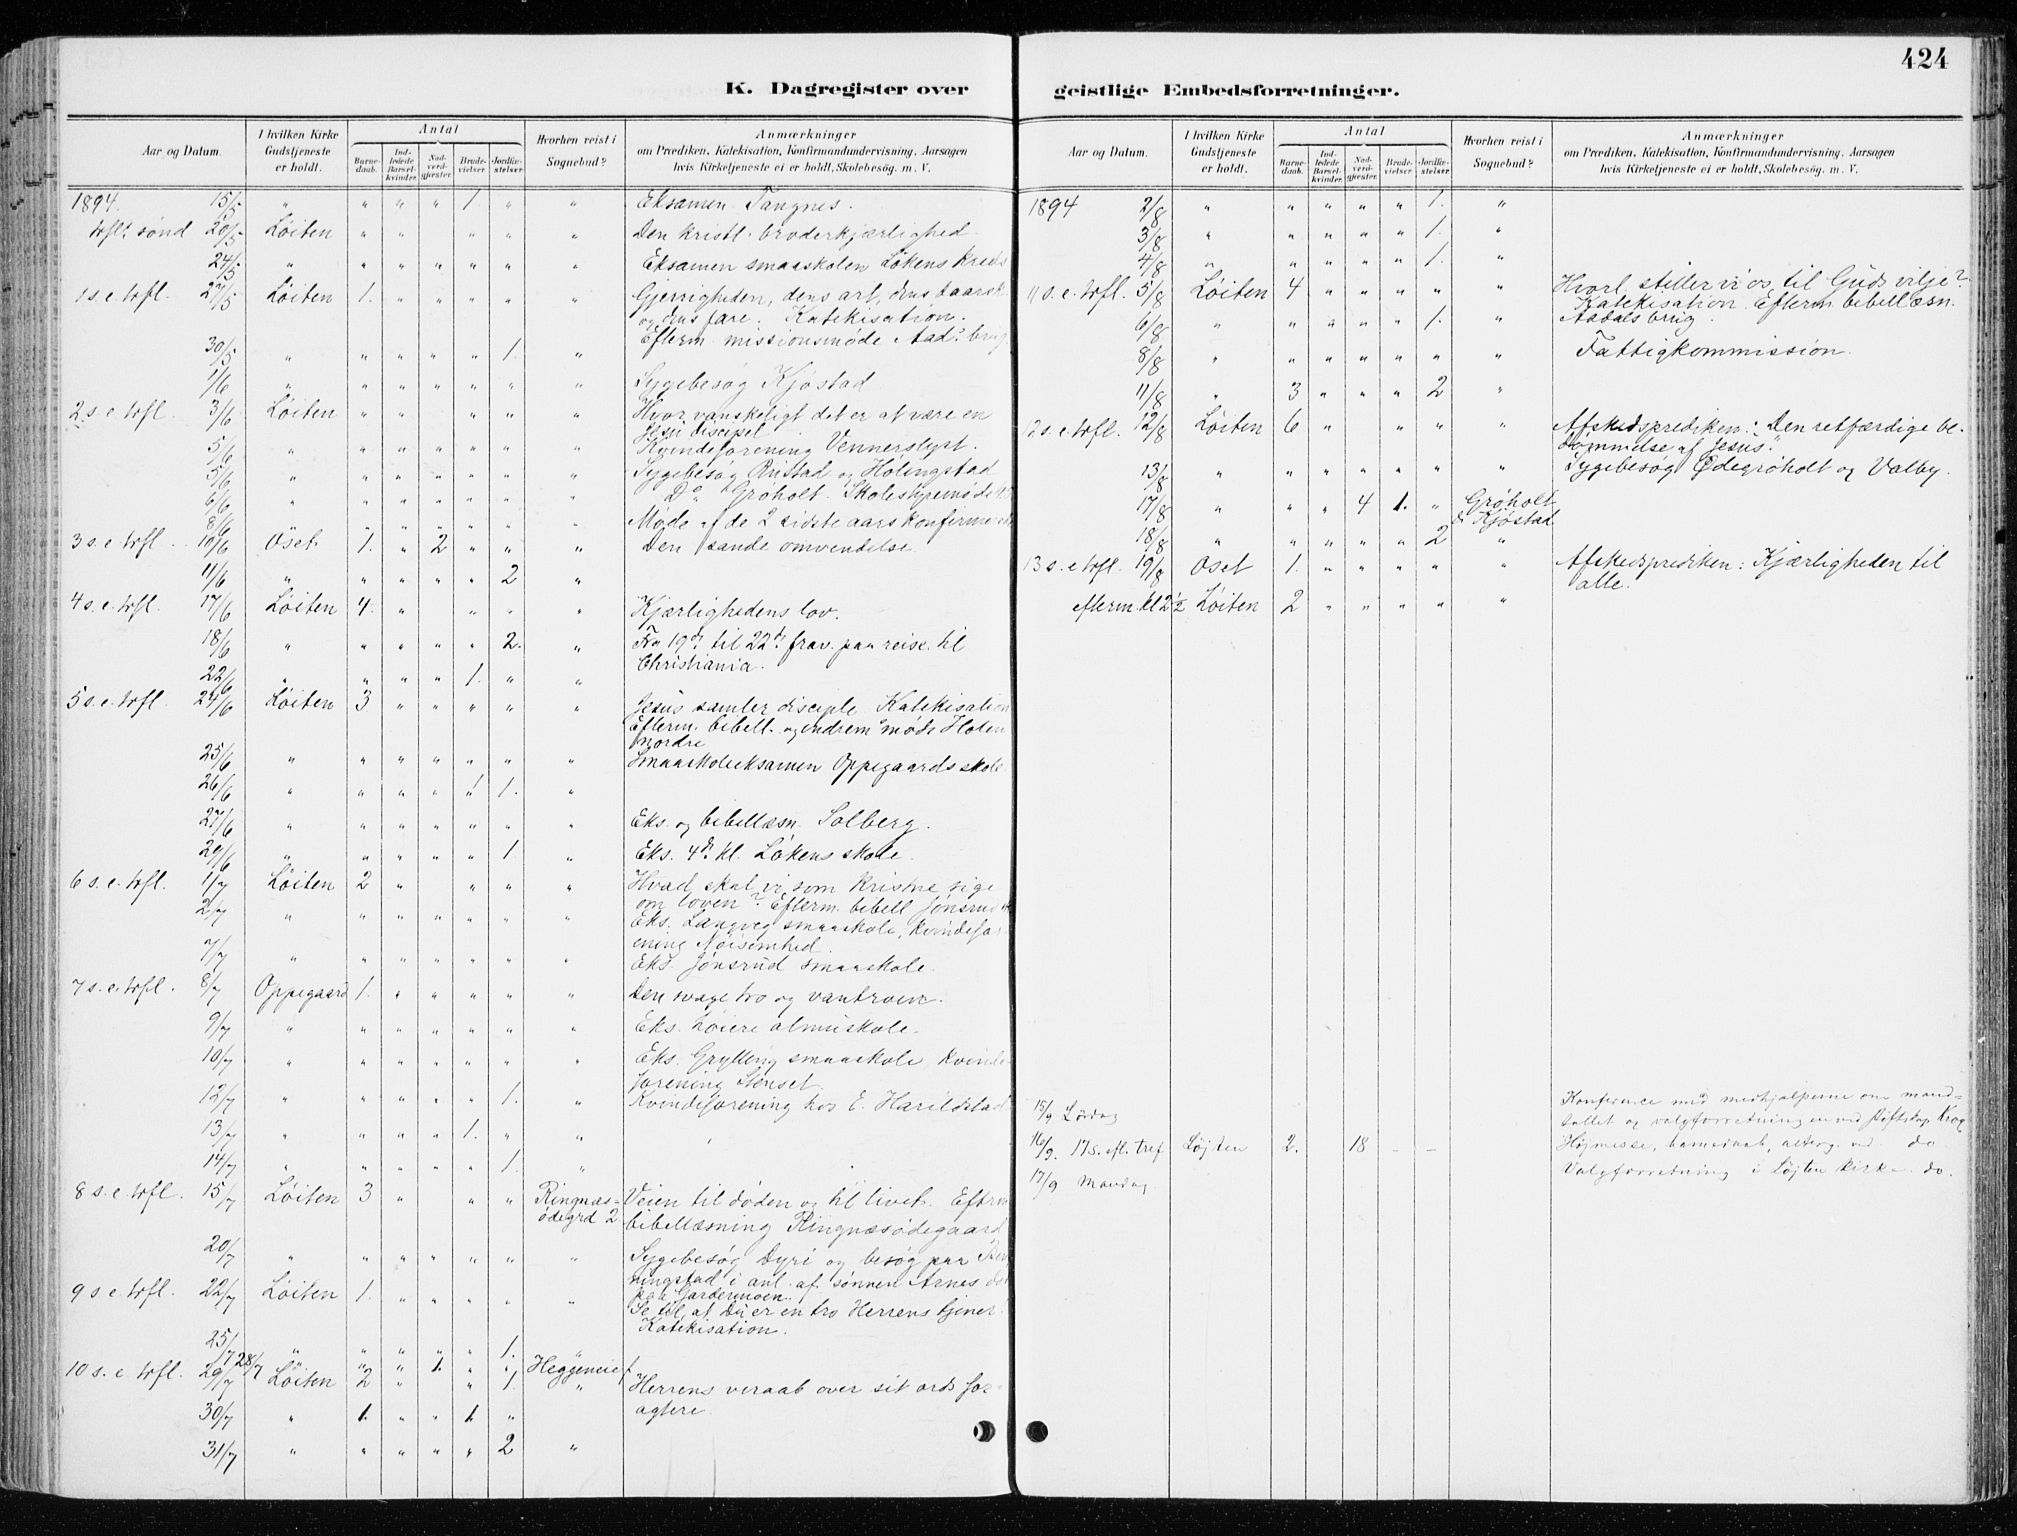 424
K. Dagregister over
geistlige Embedsforretninger.
Aar og Datum. I hvilken Kirke Gudstjeneste er holdt. Antal Barnedaab. Indledede Barselkvinder. Nadverdgjæster. Brudevielser. Jordfæstelser. Hvorhen reist i Sognebud? Anmærkninger om Prædiken, Katekisation, Konfirmandundervisning, Aarsagen hvis Kirketjeneste ei er holdt, Skolebesøg. m. V.
1894. 15/5 " " " " 1. " " Eksamen Tangnes.
trft. sønd 20/5 Löiten " " " " " Den kristl. broderkjærlighed.
24/5 " " " " " " " Eksamen smaaskolen Løkens kreds
1 s. e. trfl. 27/5 Löiten 1. " " " " " Gjerrigheden, dens art, dens
og dens fare. Katekisation.
Efterm. missionsmøde Aad. brug
30/5 " " " " " 1. "
1/6 " " " " " " " Sygebesøg Kjøstad
2 s. e. trfl. 3/6 Löiten " " " " " Hvor vanskeligt det er at være en
Jesu discipel
5/6 " " " " " " " Kvindeforening Vennerslyst.
5/6 " " " " " " " Sygebesøg Rustad og Hølingstad
6/6 " " " " " " " Do Grøholt.
8/6 " " " " " " " Møde af de 2 sidste aars
3 s. e. trfl. 10/6 Oset 1. " 2 " " " Den sande omvendelse.
11/6 " " " " " 2 "
4 s. e. trfl. 17/6 Löiten 4. " " " " Kjærlighedens lov.
18/6 " " " " " 2. " Fra 19d. til 22d. frav. paa reise til
Christiania.
22/6 " " " " 1. " "
5 s. e. trfl. 24/6 Löiten 3 " " " " " Jesus samler disciple. Katekisation
Efterm. bibell. og indrem. møde Hoten
nordre
25/6 " " " " " " " Smaaskoleeksamen Oppegaards skole
26/6 " " " " " 1. "
27/6 " " " " " " " Eks. og bibellæsn. Solberg.
29/6 " " " " " 1. " Eks. 4d. kl. Løkens skole.
6 s. e. trfl. 1/7 Löiten 2 " " " " Hvad skal vi som kristne sige
om loven? Efterm. bibell Jønsrud
2/7 " " " " " " " Eks. Langveg smaaskole, kvindefor-
ening Nøisomhed.
7/7 " " " " " " " Eks. Jønsrud smaaskole.
7 s. e. trfl. 8/7 Oppegaard 1. " " " " " Den svage tro og vantroen.
9/7 " " " " " " " Eks. Løiere almuskole.
10/7 " " " " " " " Eks. Grylling smaaskole, kvinde
forening Stenset.
12/7 " " " " " 1. " Kvindeforening hos E. Harildstad
13/7 " " " " 1. " "
14/7 " " " " " 1. "
8 s. e. trfl. 15/7 Löiten 3 " " " Ringnæs- Veien til døden og til livet. Efterm
ødegrd 2 bibellæsning Ringnæsødegaard
20/7 " " " " " " " Sygebesøg Dyri og besøg paa
ningstad i anl. af sønnen Arnes
paa Gardermoen.
9 s. e. trfl. 22/7 Löiten 1. " " " " " Se til, at Du er en tro Herrens tjener.
Katekisation.
25/7 " " " " " 1. "
28/7 " " " 1. " " Heggeneie
10 s. e. trfl. 29/7 Löiten 2 " " 1. " Herrens veraab over sit ords for-
agtere.
30/7 " 1. " " 1. "
31/7 " " " " " 2 "
Aar og Datum. I hvilken Kirke Gudstjeneste er holdt. Antal Barnedaab. Indledede Barselkvinder. Nadverdgjæster. Brudevielser. Jordfæstelser. Hvorhen reist i Sognebud? Anmærkninger om Prædiken, Katekisation, Konfirmandundervisning, Aarsagen hvis Kirketjeneste ei er holdt, Skolebesøg. m. V.
1894 2/8 " " " " " 1. "
3/8 " " " " " 1. "
4/8 " " " " " 1. "
11 s. e. trfl. 5/8 Löiten 4 " " " " " Hvorl. stiller vi os til Guds vilje?
Katekisation. Efterm. bibellæsn.
Aadals brug.
6/8 " " " " " 1. "
8/8 " " " " " " " Fattigkommission.
11/8 " 3 " " " 2 "
12 s. e. trfl. 12/8 Löiten 6 " " " " " Afskedsprediken: "Den retfærdige be-
dømmelse af Jesus."
13/8 " " " " " " " Sygebesøg Ødegrøholt og Valby.
17/8 " " " 4 1. " Grøholt
& Kjøstad
18/8 " " " " " 2 "
13 s. e. trfl. 19/8 Oset 1. " " " " " Afskedsprediken: Kjærligheden til
alle.
efterm. kl 2½ Löiten 2 " " " " "
15/9 Lørdag Konference med medhjælperne om mand-
tallet og valgforretningen ved Krog
16/9. 17 s. eft. tref Løjten 2. 18 - - Højmesse, barnedaab, alterg. ved do
17/9 Mandag. Valgforretning i Løjten Kirke. do.